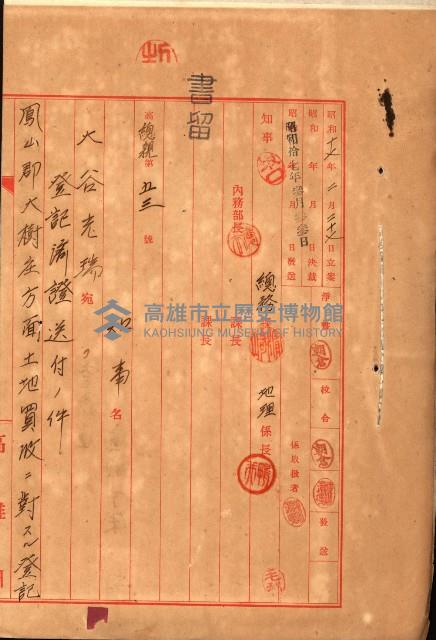 書留
昭和十七年二月二十七日立案
昭和 年 月 日決裁
昭和拾七年参月参日發送
淨書
校合
發送
知事
內務部長
總務課長
地理係長
課長
係取扱者
高總親第五三號
知事名
大谷光瑞宛
登記済證送付ノ件
鳳山郡大樹庄方面土地買收ニ對スル登記
高雄州
高雄市立歷史博物館
KAOHSIUNG MUSEUM OF HISTORY